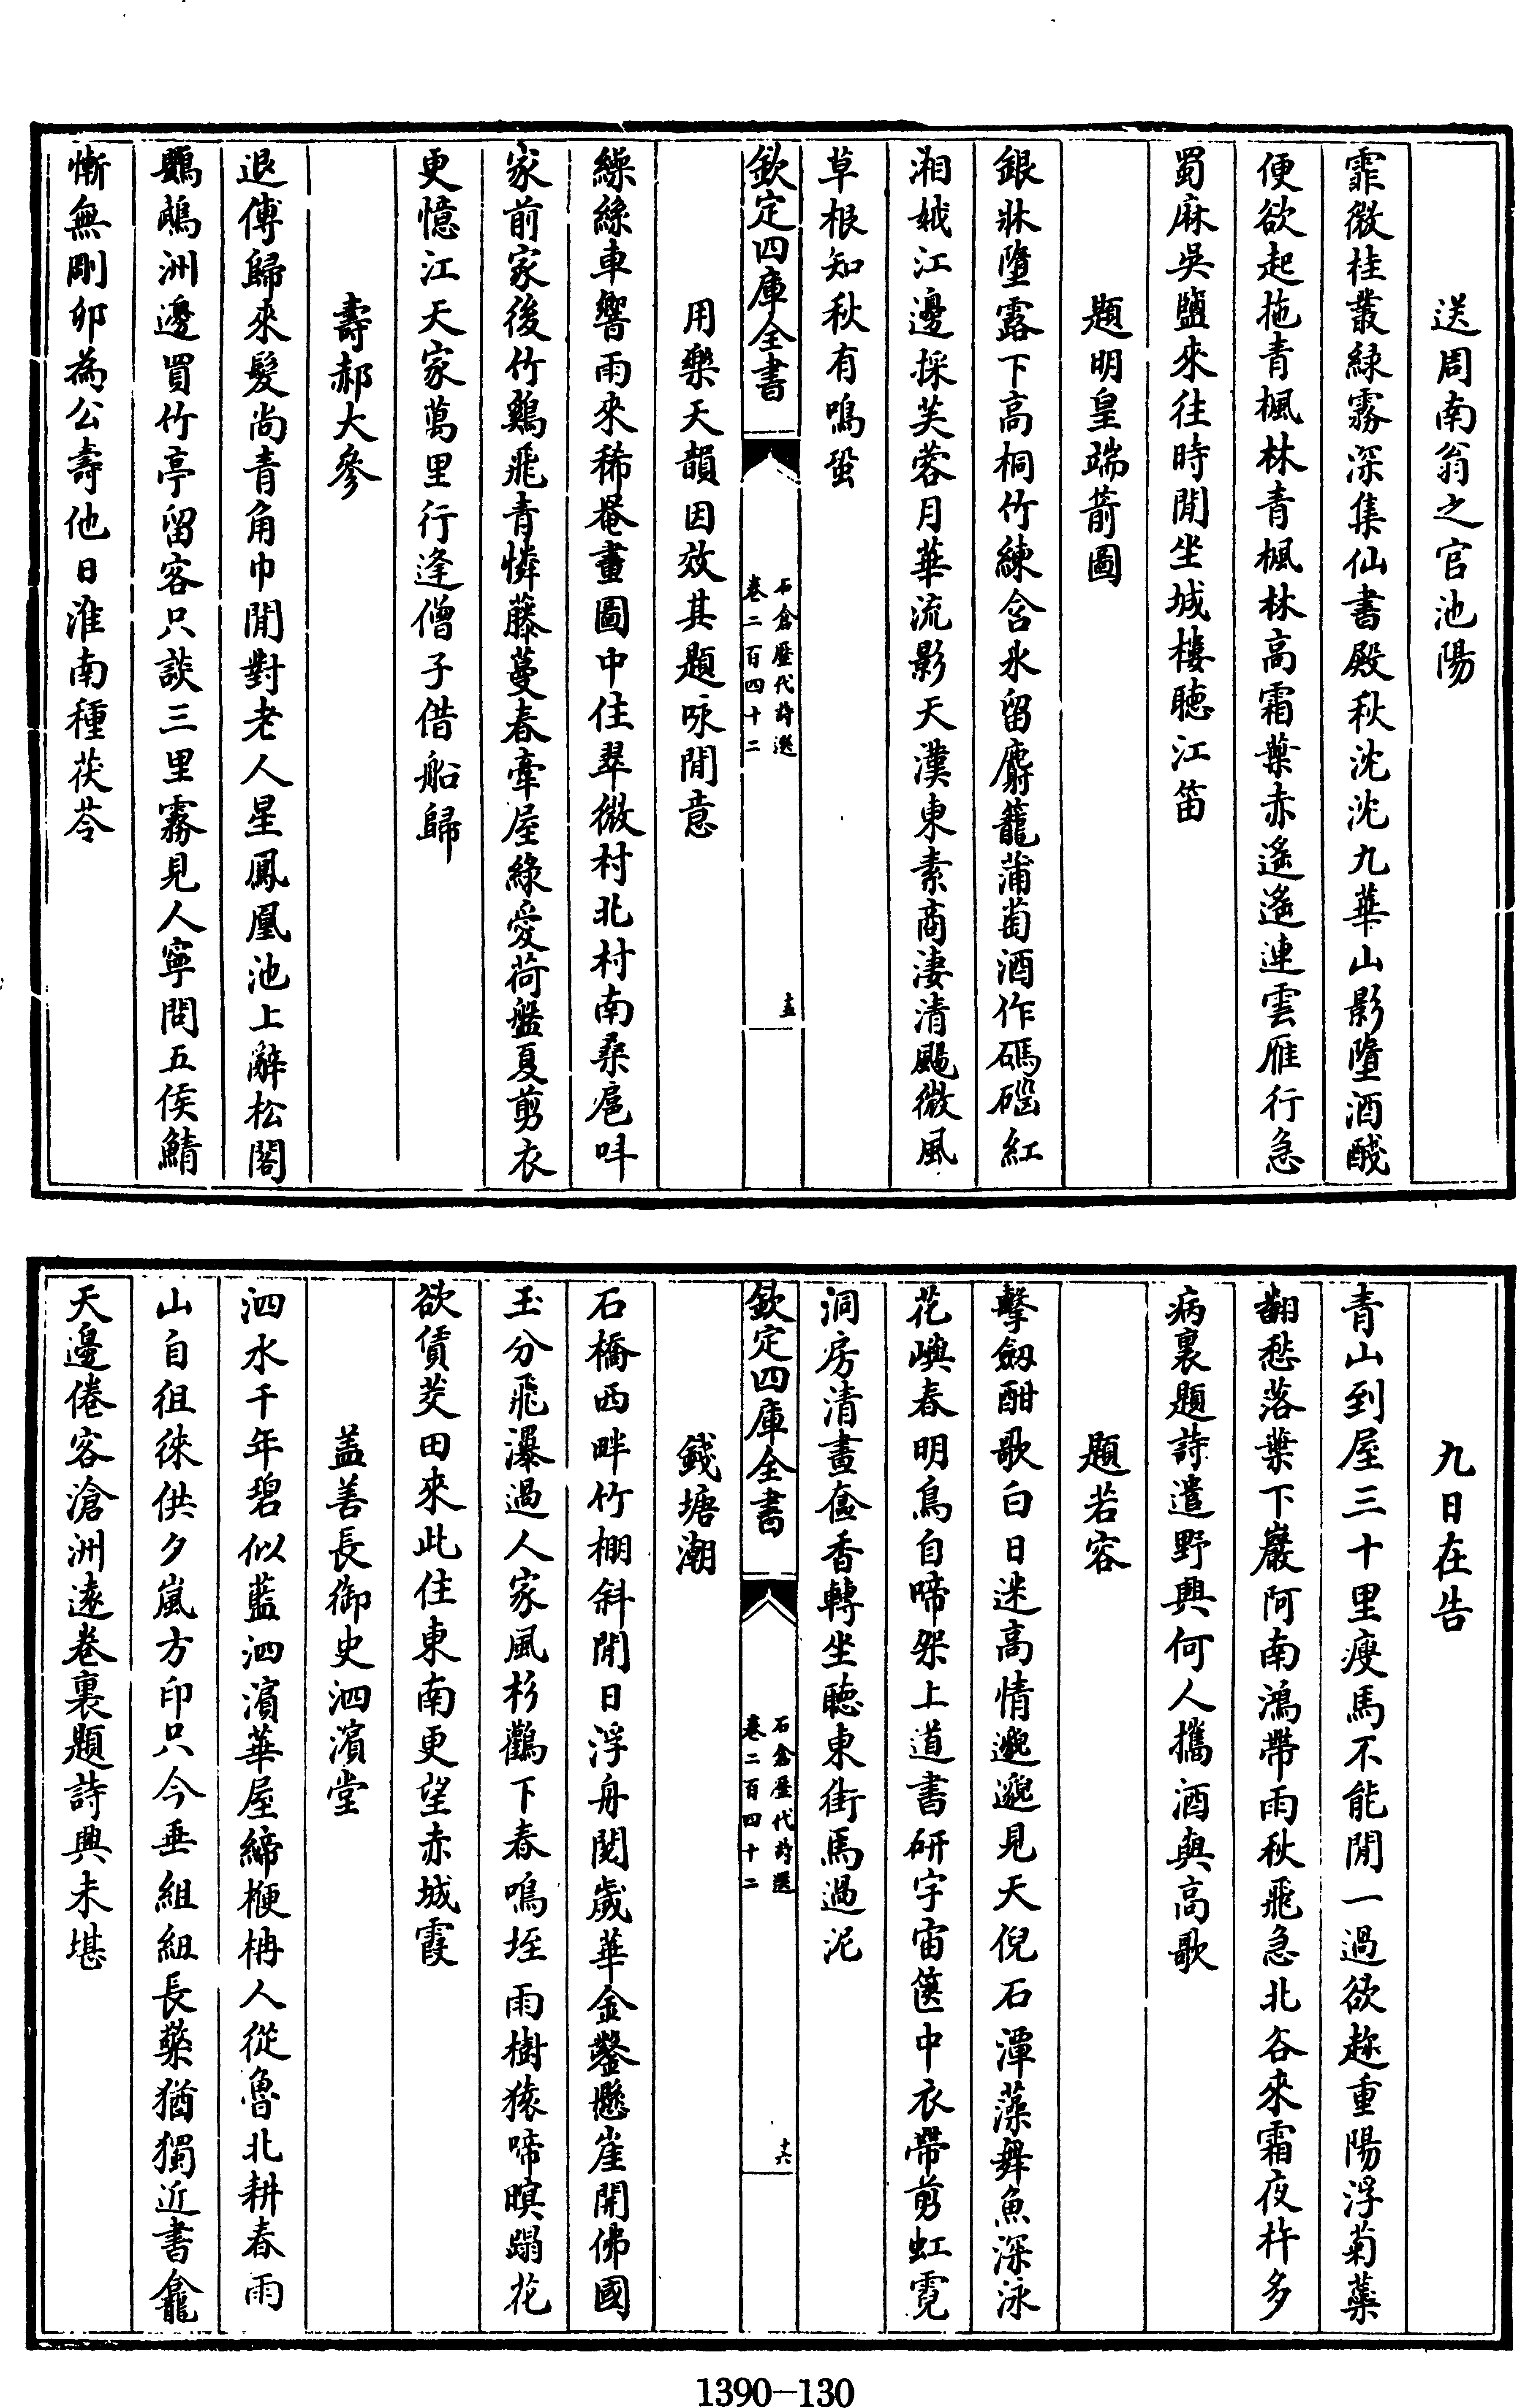 送周南翁之官池陽
霏微桂叢緑霧深集仙書殿秋沈沈九華山影墮酒醆
便欲起拖青楓林青楓林高霜葉赤遙遙連雲雁行急
蜀麻吳鹽來往時閒坐城樓聽江笛
題明皇端箭圖
銀牀墮露下高桐竹練含氷留麝籠蒲萄酒作碼碯紅
湘娥江邊採芙蓉月華流影天漢東素商淒清颸微風
草根知秋有鳴蛩
欽定四庫全書
石倉歷代詩選
卷二百四十二
十五
用樂天韻因效其題咏閒意
繰絲車響雨來稀菴畫圖中住翠微村北村南桑扈呌
家前家後竹鷄飛青憐藤蔓春牽屋綠愛荷盤夏剪衣
更憶江天家萬里行逢僧子借船歸
壽郝大參
退傅歸來髮尚青角巾閒對老人星鳳凰池上辭松閣
鸚鵡洲邊買竹亭留客只談三里霧見人寧問五侯鯖
慚無剛卯為公壽他日淮南種茯苓
九日在告
青山到屋三十里瘦馬不能閒一過欲趂重陽浮菊蘂
翻愁落葉下巖阿南鴻帶雨秋飛急北谷來霜夜杵多
病裏題詩遣野興何人攜酒與高歌
題若容
擊劒酣歌白日迷高情邈邈見天倪石潭藻舞魚深泳
花嶼春明鳥自啼架上道書研宇宙篋中衣帶剪虹霓
洞房清晝奩香轉坐聽東街馬過泥
欽定四庫全書
石倉歷代詩選
卷二百四十二
十六
錢塘潮
石橋西畔竹棚斜閒日浮舟閱歲華金鑿懸崖開佛國
玉分飛瀑過人家風杉鸛下春鳴垤雨樹猿啼暝蹋花
欲賃茭田來此住東南更望赤城霞
盖善長御史泗濵堂
泗水千年碧似藍泗濵華屋締楩柟人從魯北耕春雨
山自徂徠供夕嵐方印只今垂組組長檠猶獨近書龕
天邊倦客滄洲遠卷裏題詩興未堪
1390—130